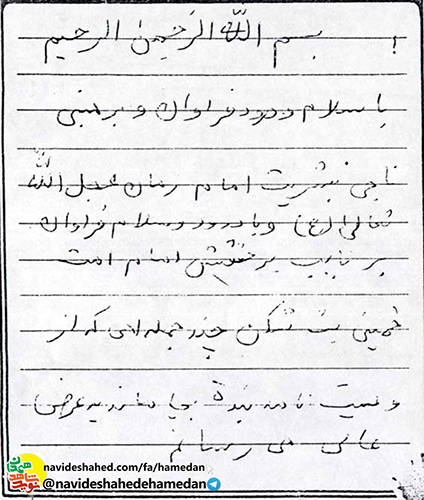 بسم الله الرحمن الرحیم
با سلام و درود فراوان و بر منجی
ناجی بشریت امام زمان عجل الله
تعالی (عج) و با درود و سلام فراوان
بر نایب بر حقش امام امت
خمینی بت شکن چند جمله ای که از
وصیت نامه بنده بجا مانده به عرض
عالی می رسانم
navideshahed.com/fa/hamedan
@navideshahedehamedan